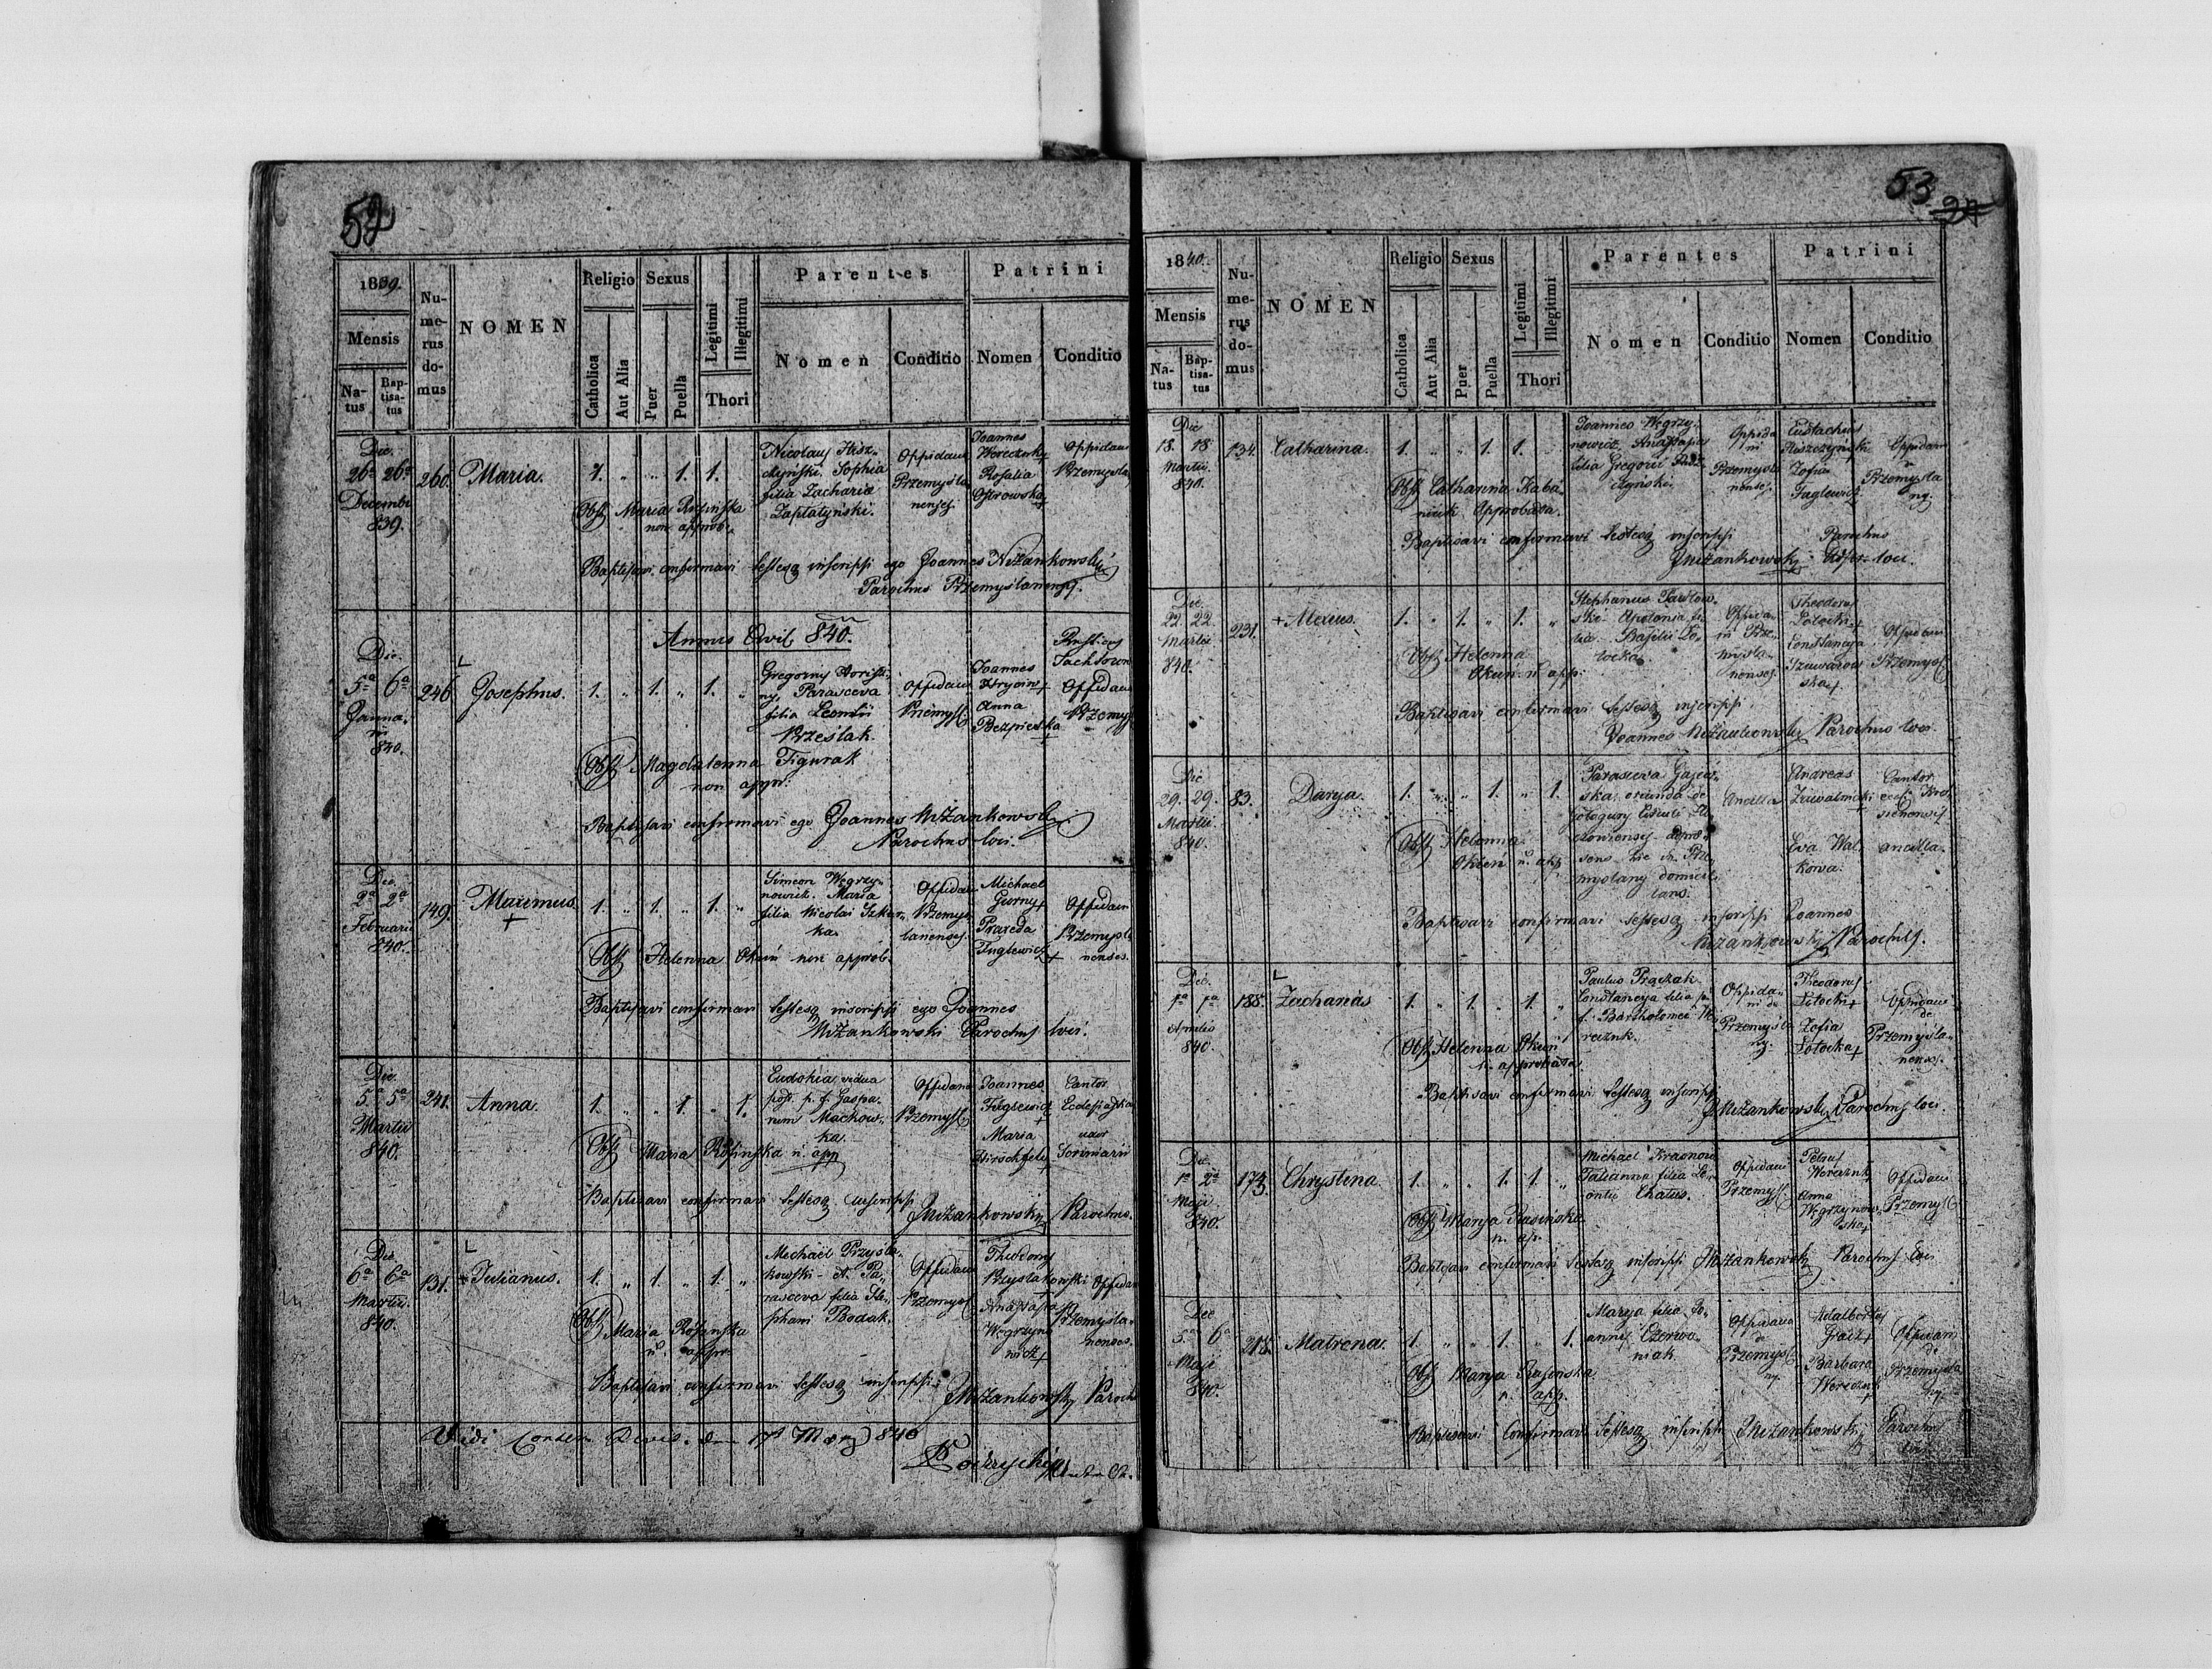 52
1839.
Mensis
Na-
tus
Bap-
tisa-
tus
Nu-
me-
rus
do-
mus
NOMEN
Religio
Catholica
Aut Alia
Sexus
Puer
Puella
Legitimi
Illegitimi
Thori
Parentes
Nomen
Conditio
Patrini
Nomen
Conditio
Die
26a 26a
Decembr
839.
260.
Maria.
1. " " 1. 1.
Nicolaus
Sophia
filia Zachariæ
Zaplatynski.
Oppidani
Przemysla
nenses.
Joannes
Woreczko
Rosalia
Ostrowska
Oppidani
Przemysla
Obst Maria Rosinska
non approb.
Baptisavi confirmavi Testesq inscripsi ego Joannes Niżankowski
Parochus Przemyslanensis.
Annus Civil. 840.
Die
5a 6a
Janua.
840.
246
Josephus.
1. " 1. " 1. "
Parasceva
filia Leontii
Przeslak
Oppidani
Przemysl
Joannes
Anna
Bezpieska
Rusticus
Oppidani
Przemysl
Obst Magdalenna Figurak
non appr.
Baptisavi confirmavi ego Joannes Niżankowski
Parochus loci.
Die
2a 2a
Februarii
840.
149.
Maximus
+
1. " 1. " 1. "
Simeon Węgrzy-
nowicz. Maria
filia Nicolai
Oppidani
Przemys-
lanenses.
Michael
Gorny+
Praxeda
Fuglewicz
+
Oppidani
Przemysla
nenses.
Obst Helenna Okun non approb.
Baptisavi confirmavi testesq inscripsi ego Joannes
Niżankowski Parochus loci.
Die
5a 5a
Martii
840.
241.
Anna.
1. " " 1. " 1.
Eudokia vidua
post p. f. Gaspa-
rum Machow-
ka.
Oppidana
Przemysl
Joannes
Fuglewicz
+
Maria
Cantor
Ecclesiasticus
uxor
Obst Maria Rosinska n. app
Baptisavi confirmavi Testesq inscripsi
J Niżankowski Parochus.
Die
6a 6a
Martii.
840.
131.
+ Julianus.
1. " 1. " 1. "
Michael Przysla-
kowski et Pa-
rasceva filia Ste-
phani Bodak.
Oppidani
Przemysl
Theodorus
Przyslakowski
Anastasia
Węgrzyno
wicz+
Oppidani
Przemysla-
nenses.
Obst Maria Rosinska
n. appr.
Baptisavi confirmavi testesq inscripsi
J Niżankowski Paroch
Vidi
840
53
27
1840.
Mensis
Na-
tus
Bap-
tisa-
tus
Nu-
me-
rus
do-
mus
NOMEN
Religio
Catholica
Aut Alia
Sexus
Puer
Puella
Legitimi
Illegitimi
Thori
Parentes
Nomen
Conditio
Patrini
Nomen
Conditio
Die
18. 18
Martii
840.
134.
Catharina.
1. " " 1. 1.
Joannes Węgrzy-
nowicz. Anastasia
filia Gregorii
Oppida
ni
Przemysla
nenses.
Eustachius
Zofia
Fuglewicz
Oppidani
Przemysla
ny.
Obst Catharina Kaba-
Approbata.
Baptisavi confirmavi testesq inscripsi
J Niżankowski Parochus
loci.
Die
22. 22.
Martii
840.
231.
+ Alexius.
1. " 1. " 1. "
Stephanus Pawlow-
ski Apolonia fi-
lia Basilii Po-
tocka.
Oppida-
ni Prze-
mysla-
nenses.
Theodorus
Constancya
Oppidani
Przemysl
Obst Helenna
Okun n. app.
Baptisavi confirmavi testesq inscripsi.
Joannes Niżankowski Parochus loci.
Die
29. 29.
Martii
840.
83.
Darya.
1. " " 1. " 1.
Parasceva
ska oriunda de
Circuli
sens hic in Prze-
myslany domicil
lans.
Ancilla
Andreas
Eva Wal-
kowa.
Cantor
ancilla.
Obst Helenna
Okun n. app
Baptisavi confirmavi testesq inscripsi Joannes
Niżankowski Parochus.
Die
1a 1a
Aprilis
840.
188.
Zacharias
1. " 1. " 1. "
Paulus
Constancya filia p.
f. Bartholomei Wo-
reczuk.
Oppida-
ni de
Przemysla
ny.
Theodorus
Zofia
Oppidani
de
Przemysla-
nenses.
Obst Helenna Okun
n. approbata.
Baptisavi confirmavi testesq inscripsi
J Niżankowski Parochus loci.
Die
1a 2a
Maji
840.
173.
Chrystina.
1. " " 1. 1. "
Michael
Tatianna filia Le-
ontii Chatus.
Oppidani
Przemysl
Petrus
Woreczuk
Anna
Węgrzynow-
ska+
Oppidani
Przemysl
Obst Marya Rasinska.
n. ap.
Baptisavi confirmavi testesq inscripsi J Niżankowski Parochus loci
Die
5a 6a
Maji
840.
218.
Matrona.
1. " " 1. " 1.
Marya filia Jo-
annis Czerwo-
niak.
Oppidana
de
Przemysla
ny.
Adalbertus
Barbara
Woreczuk
+
Oppidani
de
Przemysla
ny.
Obst Marya Rasinska
n. app.
Baptisavi Confirmavi testesq inscripsi J Niżankowski Parochus
loci